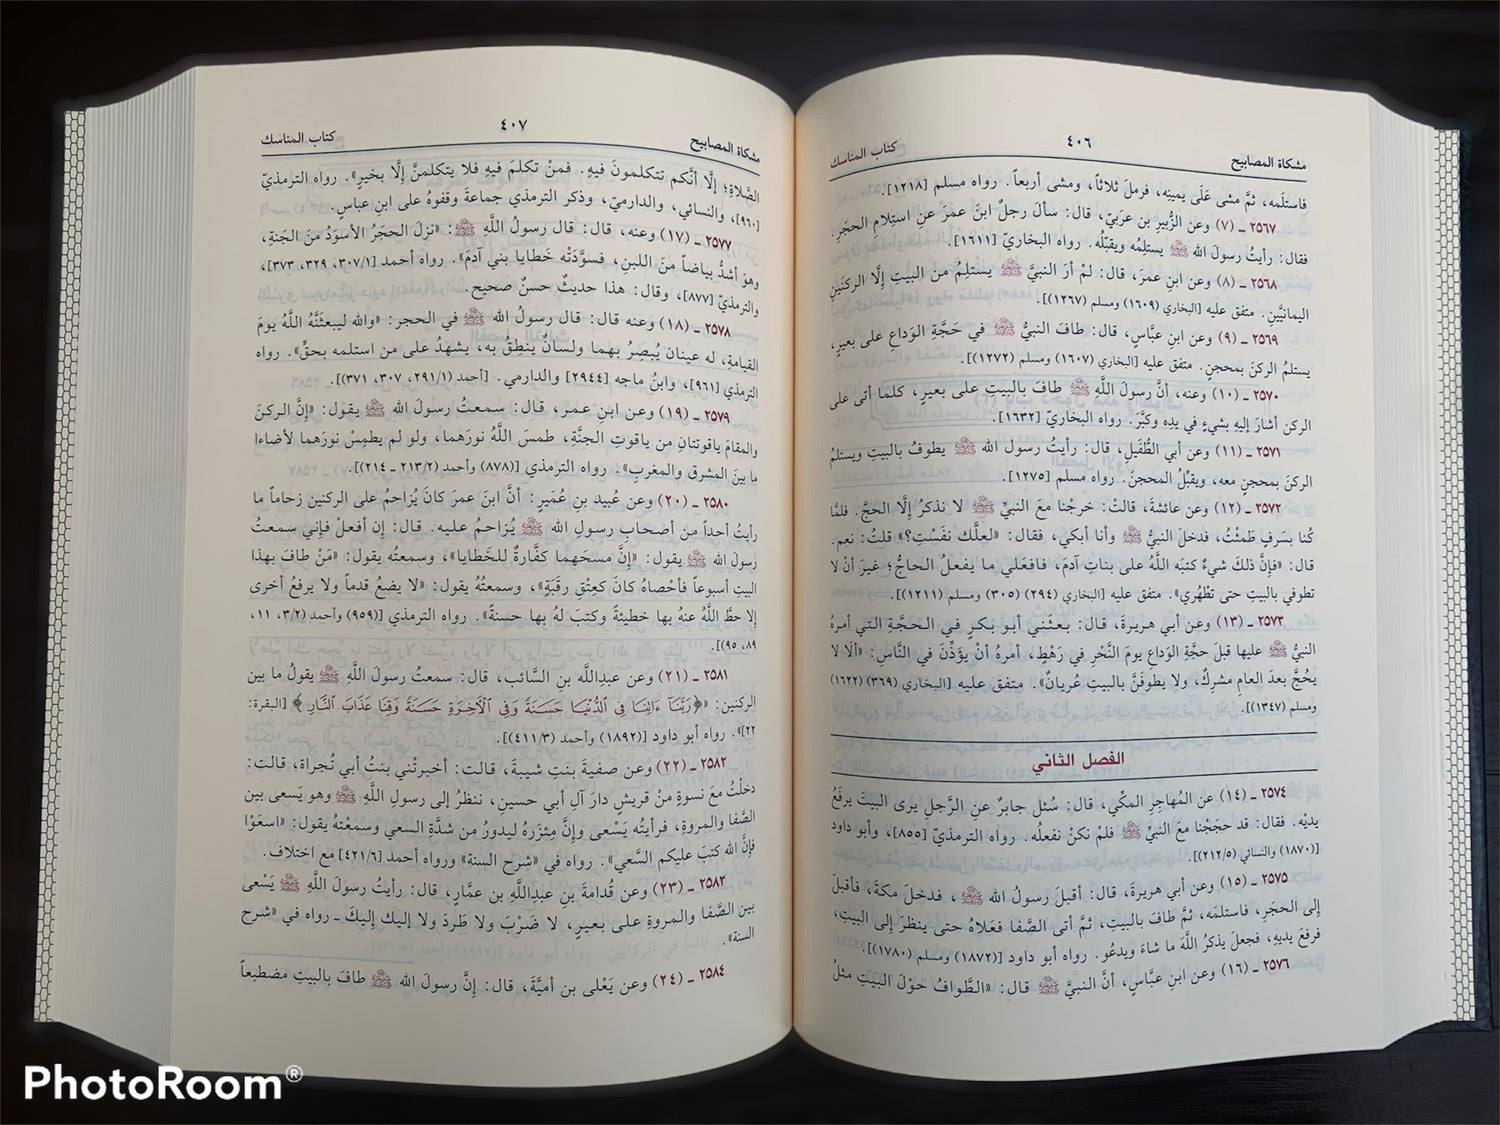 مشكاة المصابيح
٤٠٦
كتاب المناسك
فاستلَمه، ثمَّ مشى عَلَى يمينِه، فرملَ ثلاثاً، ومشى أربعاً. رواه مسلم [١٢١٨].
٢٥٦٧ ـ (٧) وعن الزُّبيرِ بن عربيّ، قال: سألَ رجلٌ ابنَ عمرَ عنِ استِلامِ الحجَرِ.
فقال: رأيتُ رسولَ الله ﷺ يستلِمُه ويقبِّلُه. رواه البخاريّ [١٦١١].
٢٥٦٨ ـ (٨) وعن ابنِ عمرَ، قال: لمْ أرَ النبيَّ ﷺ يستلِمُ من البيتِ إِلَّا الركنَينِ
اليمانيَّينِ. متفق عليه [البخاري (١٦٠٩) ومسلم (١٢٦٧)].
٢٥٦٩ ـ (٩) وعن ابنِ عبَّاسٍ، قال: طافَ النبيُّ ﷺ في حَجَّةِ الوَداعِ على بعيرٍ،
يستلِمُ الركنَ بمحجنٍ. متفق عليه [البخاري (١٦٠٧) ومسلم (١٢٧٢)].
٢٥٧٠ ـ (١٠) وعنه، أنَّ رسولَ اللَّهِ ﷺ طافَ بالبيتِ على بعيرٍ، كلما أتى على
الركن أشارَ إليهِ بشيءٍ في يدِه وكبَّرَ. رواه البخاريّ [١٦٣٢].
٢٥٧١ ـ (١١) وعن أبي الطُّفَيلِ، قال: رأيتُ رسول الله ﷺ يطوفُ بالبيتِ ويستلمُ
الركنَ بمحجنٍ معه، ويقبِّلُ المحجنَ. رواه مسلم [١٢٧٥].
٢٥٧٢ ـ (١٢) وعن عائشةَ، قالتْ: خرجْنا معَ النبيِّ ﷺ لا نذكرُ إِلَّا الحجَّ. فلمَّا
كُنا بسَرِفٍ طَمثْتُ، فدخلَ النبيُّ ﷺ وأنا أبكي، فقال: «لعلَّك نفَسْتِ؟» قلتُ: نعم.
قال: «فإِنَّ ذلكَ شيءٌ كتبَه اللَّهُ على بناتِ آدمَ، فافعَلي ما يفعلُ الحاجُّ؛ غيرَ أنْ لا
تطوفي بالبيتِ حتى تطْهُري». متفق عليه [البخاري (٢٩٤) (٣٠٥) ومسلم (١٢١١)].
٢٥٧٣ ـ (١٣) وعن أبي هريرةَ، قال: بعثَني أبو بكرٍ في الحجَّةِ التي أمرهُ
النبيُّ ﷺ عليها قبلَ حجَّةِ الوَداعِ يومَ النَّحْرِ في رَهْطٍ، أمرَهُ أنْ يؤَذِّنَ في النَّاسِ: «ألَا لا
يحُجَّ بعدَ العامِ مشرِكٌ، ولا يطوفَنَّ بالبيتِ عُريانٌ». متفق عليه [البخاري (٣٦٩) (١٦٢٢)
ومسلم (١٣٤٧)].
الفصل الثاني
٢٥٧٤ ـ (١٤) عن المُهاجِرِ المكّي، قال: سُئل جابرٌ عنِ الرَّجلِ يرى البيتَ يرفَعُ
يديْه. فقال: قد حجَجْنا معَ النبيِّ ﷺ فلمْ نكنْ نفعلُه. رواه الترمذيّ [٨٥٥]، وأبو داود
[(١٨٧٠) والنسائي (٢١٢/٥)].
٢٥٧٥ ـ (١٥) وعن أبي هريرةَ، قال: أقبلَ رسولُ الله ﷺ، فدخلَ مكةَ، فأقبلَ
إلى الحجَرِ، فاستلمَه، ثمَّ طافَ بالبيتِ، ثم أتى الصَّفا فعَلاهُ حتى ينظرَ إلى البيتِ،
فرفعَ يديهِ، فجعلَ يذكرُ اللَّهَ ما شاءَ ويدعُو. رواه أبو داود [(١٨٧٢) ومسلم (١٧٨٠)].
٢٥٧٦ ـ (١٦) وعن ابنِ عبَّاسٍ، أنَّ النبيَّ ﷺ قال: «الطَّوافُ حوْلَ البيتِ مثلُ
مشكاة المصابيح
٤٠٧
كتاب المناسك
الصَّلاةِ؛ إلَّا أنَّكم تتكلمونَ فيهِ. فمنْ تكلمَ فيهِ فلا يتكلمنَّ إلَّا بخيرٍ». رواه الترمذيّ
[٩٦٠]، والنسائي، والدارميّ، وذكر الترمذي جماعةَ وقفوهُ على ابنِ عباسٍ.
٢٥٧٧ ـ (١٧) وعنه، قال: قال رسولُ اللَّهِ ﷺ: «نزلَ الحجَرُ الأسوَدُ منَ الجَنةِ،
وهوَ أشدُّ بياضاً منَ اللبنِ، فسوَّدَتْه خَطايا بني آدمَ». رواه أحمد [٣٠٧/١، ٣٢٩، ٣٧٣]،
والترمذيّ [٨٧٧]، وقال: هذا حديثٌ حسنٌ صحيح.
٢٥٧٨ ـ (١٨) وعنه قال: قال رسولُ الله ﷺ في الحجر: «والله ليبعثَنَّهُ اللَّهُ يومَ
القيامةِ، له عينان يُبصِرُ بهما ولسانٌ ينطِقُ به، يشهدُ على من استلمه بحقٍّ». رواه
الترمذي [٩٦١]، وابنُ ماجه [٢٩٤٤] والدارمي. [أحمد (٢٩١/١، ٣٠٧، ٣٧١)].
٢٥٧٩ ـ (١٩) وعن ابنِ عمر، قال: سمعتُ رسولَ الله ﷺ يقول: «إنَّ الركنَ
والمقامَ ياقوتتانِ من ياقوتِ الجنَّةِ، طمسَ اللَّهُ نورَهما، ولو لم يطمِسْ نورَهما لأضاءا
ما بينَ المشرقِ والمغربِ». رواه الترمذي [(٨٧٨) وأحمد (٢١٣/٢ ـ ٢١٤)].
٢٥٨٠ ـ (٢٠) وعن عُبيد بنِ عُمَيرٍ: أنَّ ابنَ عمرَ كانَ يُزاحمُ على الركنين زحاماً ما
رأيتُ أحداً من أصحابِ رسولِ الله ﷺ يُزاحمُ عليه. قال: إن أفعلْ فإني سمعتُ
رسولَ الله ﷺ يقول: «إنَّ مسحَهما كفَّارةٌ للخَطايا»، وسمعتُه يقول: «مَنْ طافَ بهذا
البيتِ أسبوعاً فأحْصاهُ كانَ كعِتْقِ رقَبَةٍ»، وسمعتُهُ يقول: «لا يضعُ قدماً ولا يرفعُ أخرى
إلا حطَّ اللَّهُ عنهُ بها خطيئةً وكتبَ لهُ بها حسنةً». رواه الترمذي [(٩٥٩) وأحمد (٣/٢، ١١،
٨٩، ٩٥)].
٢٥٨١ ـ (٢١) وعن عبدِاللَّه بنِ السَّائب، قال: سمعتُ رسولَ اللَّهِ ﷺ يقولُ ما بين
الركنين: «﴿رَبَّنَآ ءَاتِنَا فِى ٱلدُّنْيَا حَسَنَةً وَفِى ٱلْأَخِرَةِ حَسَنَةً وَقِنَا عَذَابَ ٱلنَّارِ﴾ [البقرة:
٢٢]». رواه أبو داود [(١٨٩٢) وأحمد (٤١١/٣)].
٢٥٨٢ ـ (٢٢) وعن صفيةَ بنتِ شيبةَ، قالت: أخبرتْني بنتُ أبي تُجراةَ، قالت:
دخلْتُ معَ نسوةٍ منْ قريشٍ دارَ آلِ أبي حسينٍ، ننظرُ إلى رسولِ اللَّهِ ﷺ وهو يَسعى بين
الصَّفا والمروةِ، فرأيتُه يَسْعى وإنَّ مِئزَرهُ ليدورُ من شدَّةِ السعي وسمعْتُه يقول: «اسعَوْا
فإنَّ الله كتبَ عليكم السَّعي». رواه في «شرح السنة» ورواه أحمد [٤٢١/٦] مع اختلاف.
٢٥٨٣ ـ (٢٣) وعن قُدامةَ بنِ عبدِاللَّهِ بنِ عمَّارٍ، قال: رأيتُ رسولَ اللَّهِ ﷺ يَسْعى
بين الصَّفا والمروةِ على بعيرٍ، لا ضَرْبَ ولا طَردَ ولا إليك إليكَ ـ رواه في «شرح
السنة».
٢٥٨٤ ـ (٢٤) وعن يَعْلى بن أميَّةَ، قال: إنَّ رسولَ الله ﷺ طافَ بالبيتِ مضطبعاً
PhotoRoom®